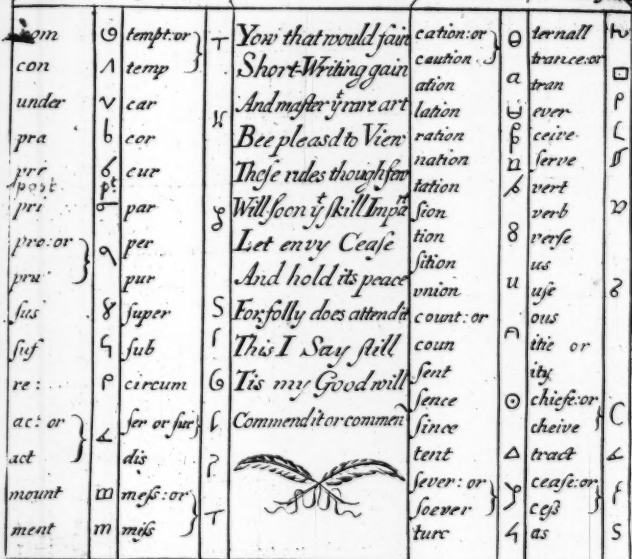 com
con
under
pra
pre
post
pri
pro: or
pru
ſus
ſuf
re:
ac: or
act
mount
ment
tempt: or
temp
car
cor
cur
par
per
pur
ſuper
ſub
circum
ſer or ſur
dis
meſs: or
miſs
Yow that would fain
Short-Writing gain
And maſter yͤ rare art
Bee pleasd to View
Theſe rules though few
Will ſoon yͭ ſkill Impart
Let envy Ceaſe
And hold its peace
For folly does attend it
This I Say ſtill
Tis my Good will
Commend it or
cation: or
caution
ation
lation
ration
nation
tation
ſion
tion
ſition
vnion
count: or
coun
ſent
ſence
ſince
tent
ſever: or
ſoever
ture
ternall
trance: or
tran
ever
ceive
ſerve
vert
verb
verſe
us
uſe
ous
itie or
ity
chiefe: or
cheive
tract
ceaſe: or
ceſs
as